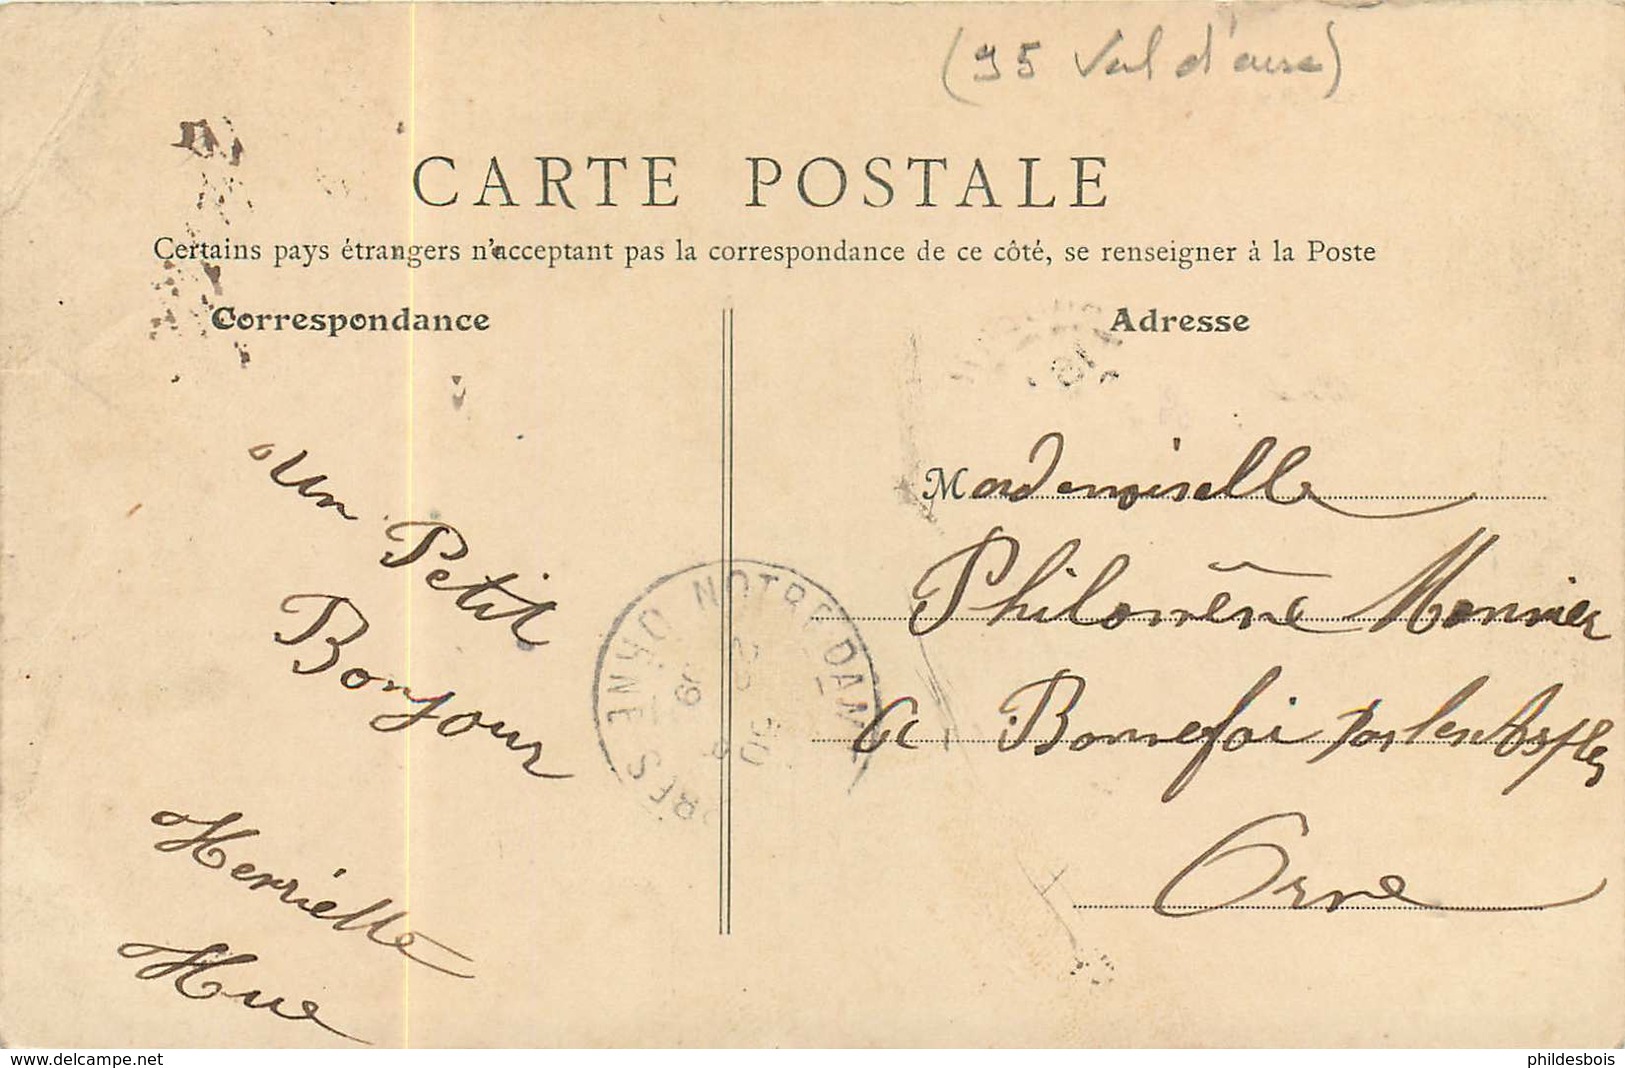 (95 Val d'oise)
CARTE POSTALE
Certains pays étrangers n'acceptant pas la correspondance de ce côté, se renseigner à la Poste
Correspondance
Adresse
Un Petit
Bonjour
Henriette
Hue
Mademoiselle
Philomène Monnier
a Bonnefoi par les Aspres
Orne
NOTRE DAM
PRES
ORNE
www.delcampe.net
phildesbois